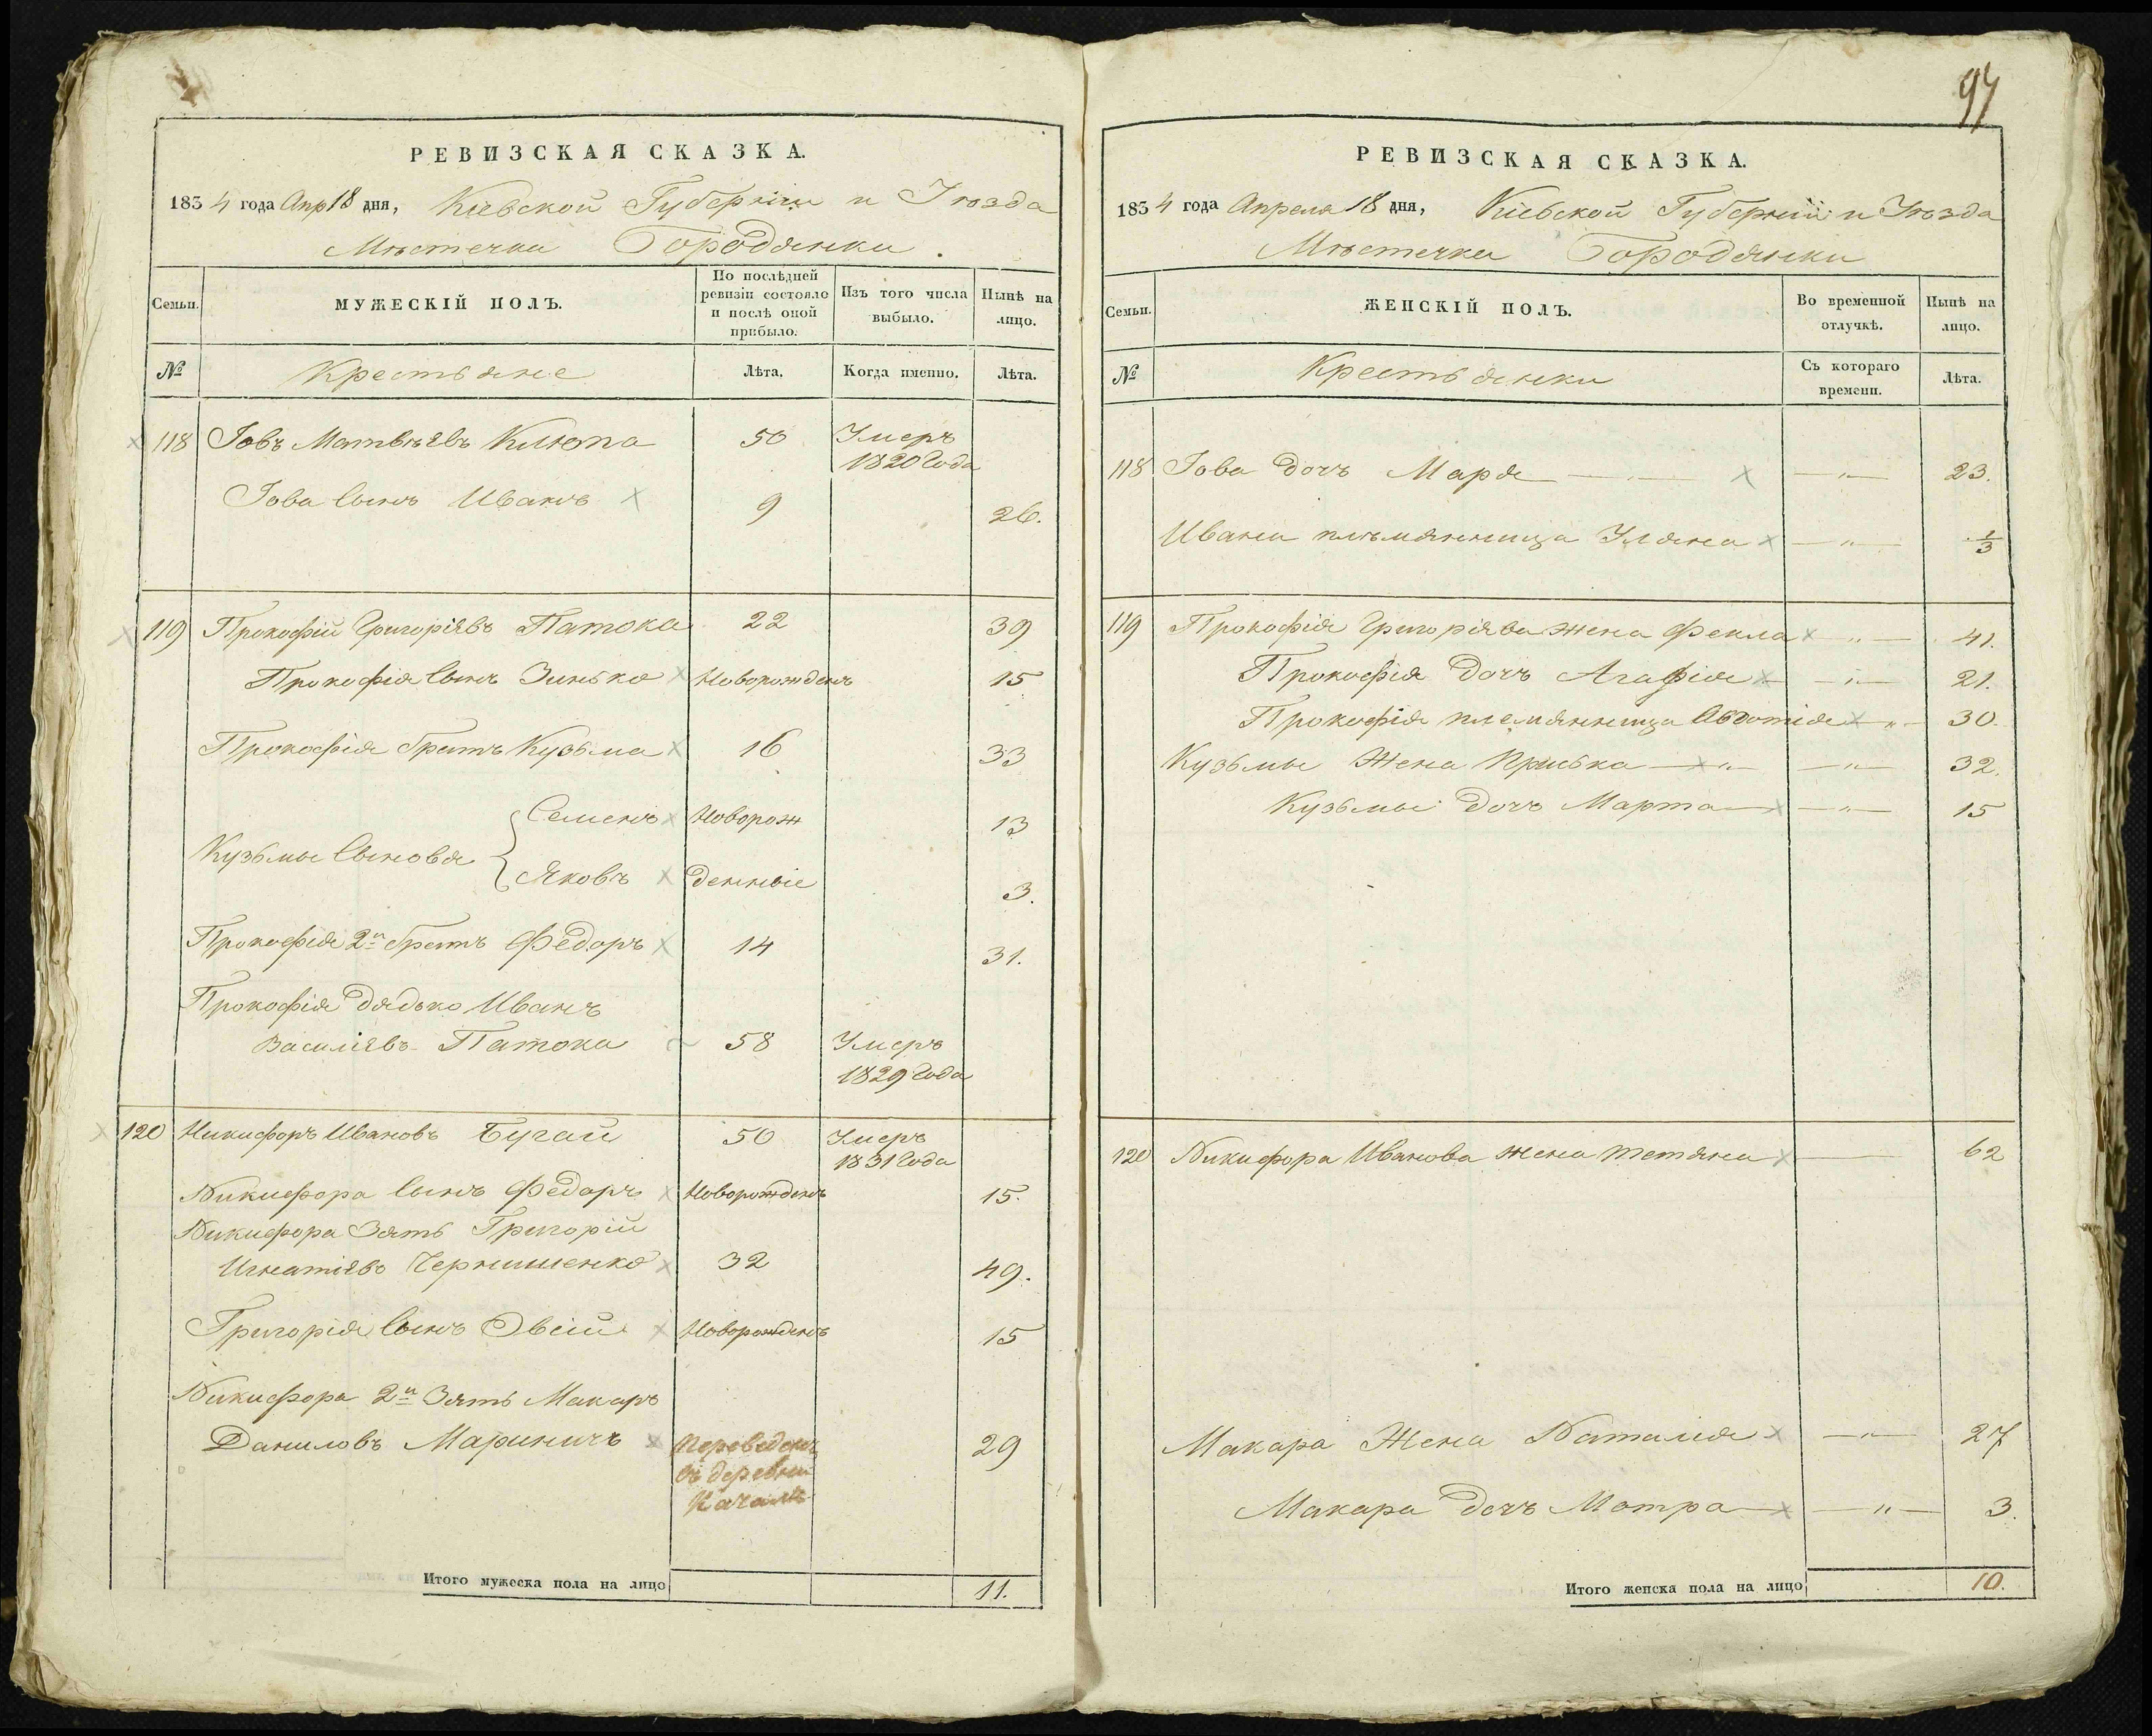 РЕВИЗСКАЯ СКАЗКА.
1834 года Апр 18 дня, Кіевской Губерніи и Уѣзда
Мѣстечка Бородянки.
Семьи. МУЖЕСКІЙ ПОЛЪ. По послѣдней ревизіи состояло и послѣ оной прибыло. Изъ того числа выбыло. Нынѣ на лицо.
№ Крестьяне Лѣта. Когда именно. Лѣта.
118 Іовъ Матвѣевъ Клюпа 50 Умеръ
1820 Года
Іова Сынъ Иванъ 9 26.
119 Прокофій Григоріевъ Патока 22 39
Прокофія Сынъ Зинько Новорожденъ 15
Прокофія братъ Кузьма 16 33
Семенъ Новорож 13
Кузьмы Сыновья
Яковъ денные 3.
Прокофія 2й братъ Федоръ 14 31.
Прокофія дядько Иванъ
Василіевъ Патока 58 Умеръ
1829 Года
120 Никифоръ Ивановъ Бугай 50 Умеръ
1831 Года
Никифора Сынъ Федоръ Новорожденъ 15.
Никифора Зять Григорій
Игнатіевъ Чернишенко 32 49.
Григорія Сынъ Овсій Новорожденъ 15
Никифора 2й Зять Макаръ
Даниловъ Мариничъ Переведенъ 29
въ деревни
Качалы
Итого мужеска пола на лицо 11.
97
РЕВИЗСКАЯ СКАЗКА.
1834 года Апреля 18 дня, Кіевской Губерніи и Уѣзда
Мѣстечка Бородянки
Семьи. ЖЕНСКІЙ ПОЛЪ. Во временной отлучкѣ. Нынѣ на лицо.
№ Крестьянки Съ котораго времени. Лѣта.
118 Іова Дочъ Маря — " — — " — 23.
Ивана племянница Уляна — " — 1/3
119 Прокофія Григоріева жена Фекла — " — 41.
Прокофія Дочъ Агафія — " — 21.
Прокофія племянница Авдотія — " — 30.
Кузьмы Жена Приська — " — — " — 32.
Кузьмы Дочъ Марта — " — 15
120 Никифора Иванова жена Тетяна — 62
Макара Жена Наталія — " — 27
Макара Дочъ Мотра — " — 3.
Итого женска пола на лицо 10.